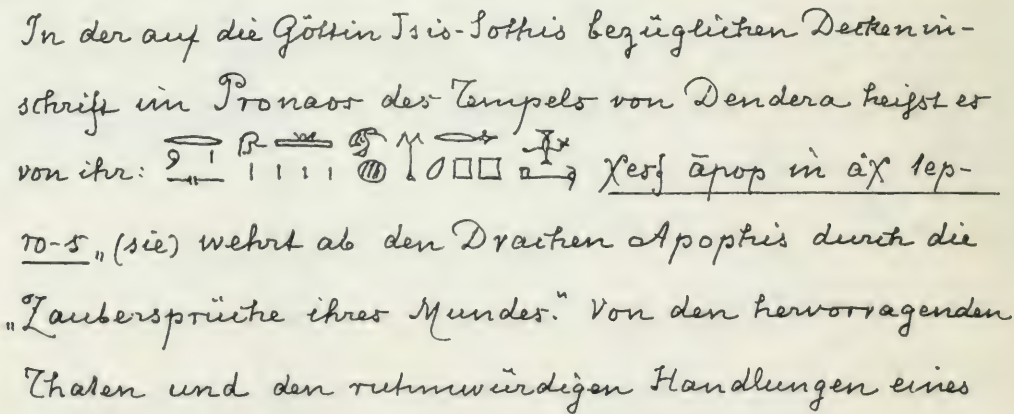 In der auf die Göttin Isis-Sothis bezüglichen Deckenin-
schrift im Pronaos des Tempels von Dendera heifst es
von ihr: χesf āpop in áχ tep-
ro-s „(sie) wehrt ab den Drachen Apophis durch die
„Zaubersprüche ihres Mundes.“ Von den hervorragenden
Thaten und den ruhmwürdigen Handlungen eines